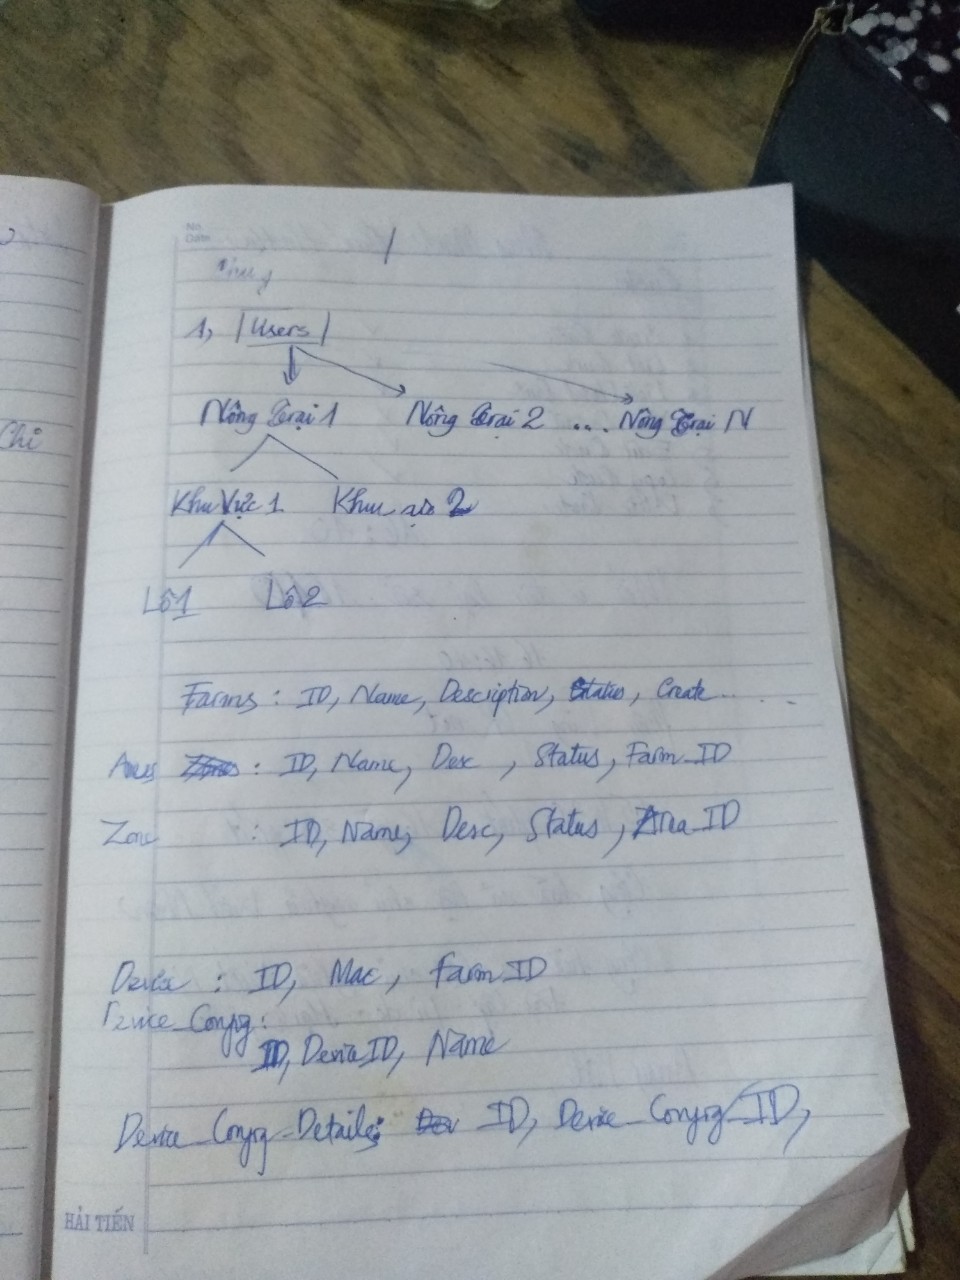 No.
Date
1, | Users |
Nông Trại 1 Nông Trại 2 ... Nông Trại N
Chi
Khu Vực 1 Khu vực 2
Lô 1 Lô 2
Farms : ID, Name, Description, Status, Create ...
: ID, Name, Desc , Status, Farm_ID
Zone : ID, Name, Desc, Status, Area_ID
Device : ID, Mac, Farm ID
Device_Config:
ID, Device ID, Name
Device_Config_Details: ID, Device_Config_ID,
HẢI TIẾN